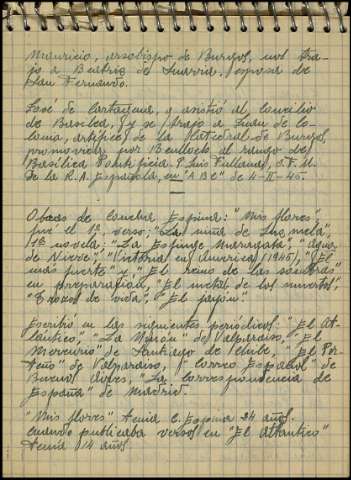 Mauricio, arzobispo de Burgos, nos tra-
jo a Beatriz de Suavia, esposa de
San Fernando.
José de Cartagena, y asistió al Concilio
de Basilea, (y se) trajo a Juan de Co-
lonia, artífice de la Catedral de Burgos,
promovida por Benlloch al rango de
Basílica Pontificia. P. Luis Fullana, O.F.M.
de la R.A. Española, en "A B C" de 4-II-45.
Obras de Concha Espina: "Mis flores",
fué el 1º, verso; "La niña de Luzmela",
1ª novela; "La Esfinge Maragata", "Agua
de Nieve", "Victoria en América (1945), "El
más fuerte" y "El reino de las sombras"
en preparación, "El metal de los muertos",
"Trozos de vida", "El jayón".
Escribió en los siguientes periódicos: "El At-
lántico", "La Unión" de Valparaíso, "El
Mercurio" de Santiago de Chile, "El Por-
teño" de Valparaíso, "Correo Español" de
Buenos Aires, "La Correspondencia de
España" de Madrid.
"Mis flores" tenía C. Espina 24 años.
cuando publicaba versos en "El Atlántico"
tenía 14 años.